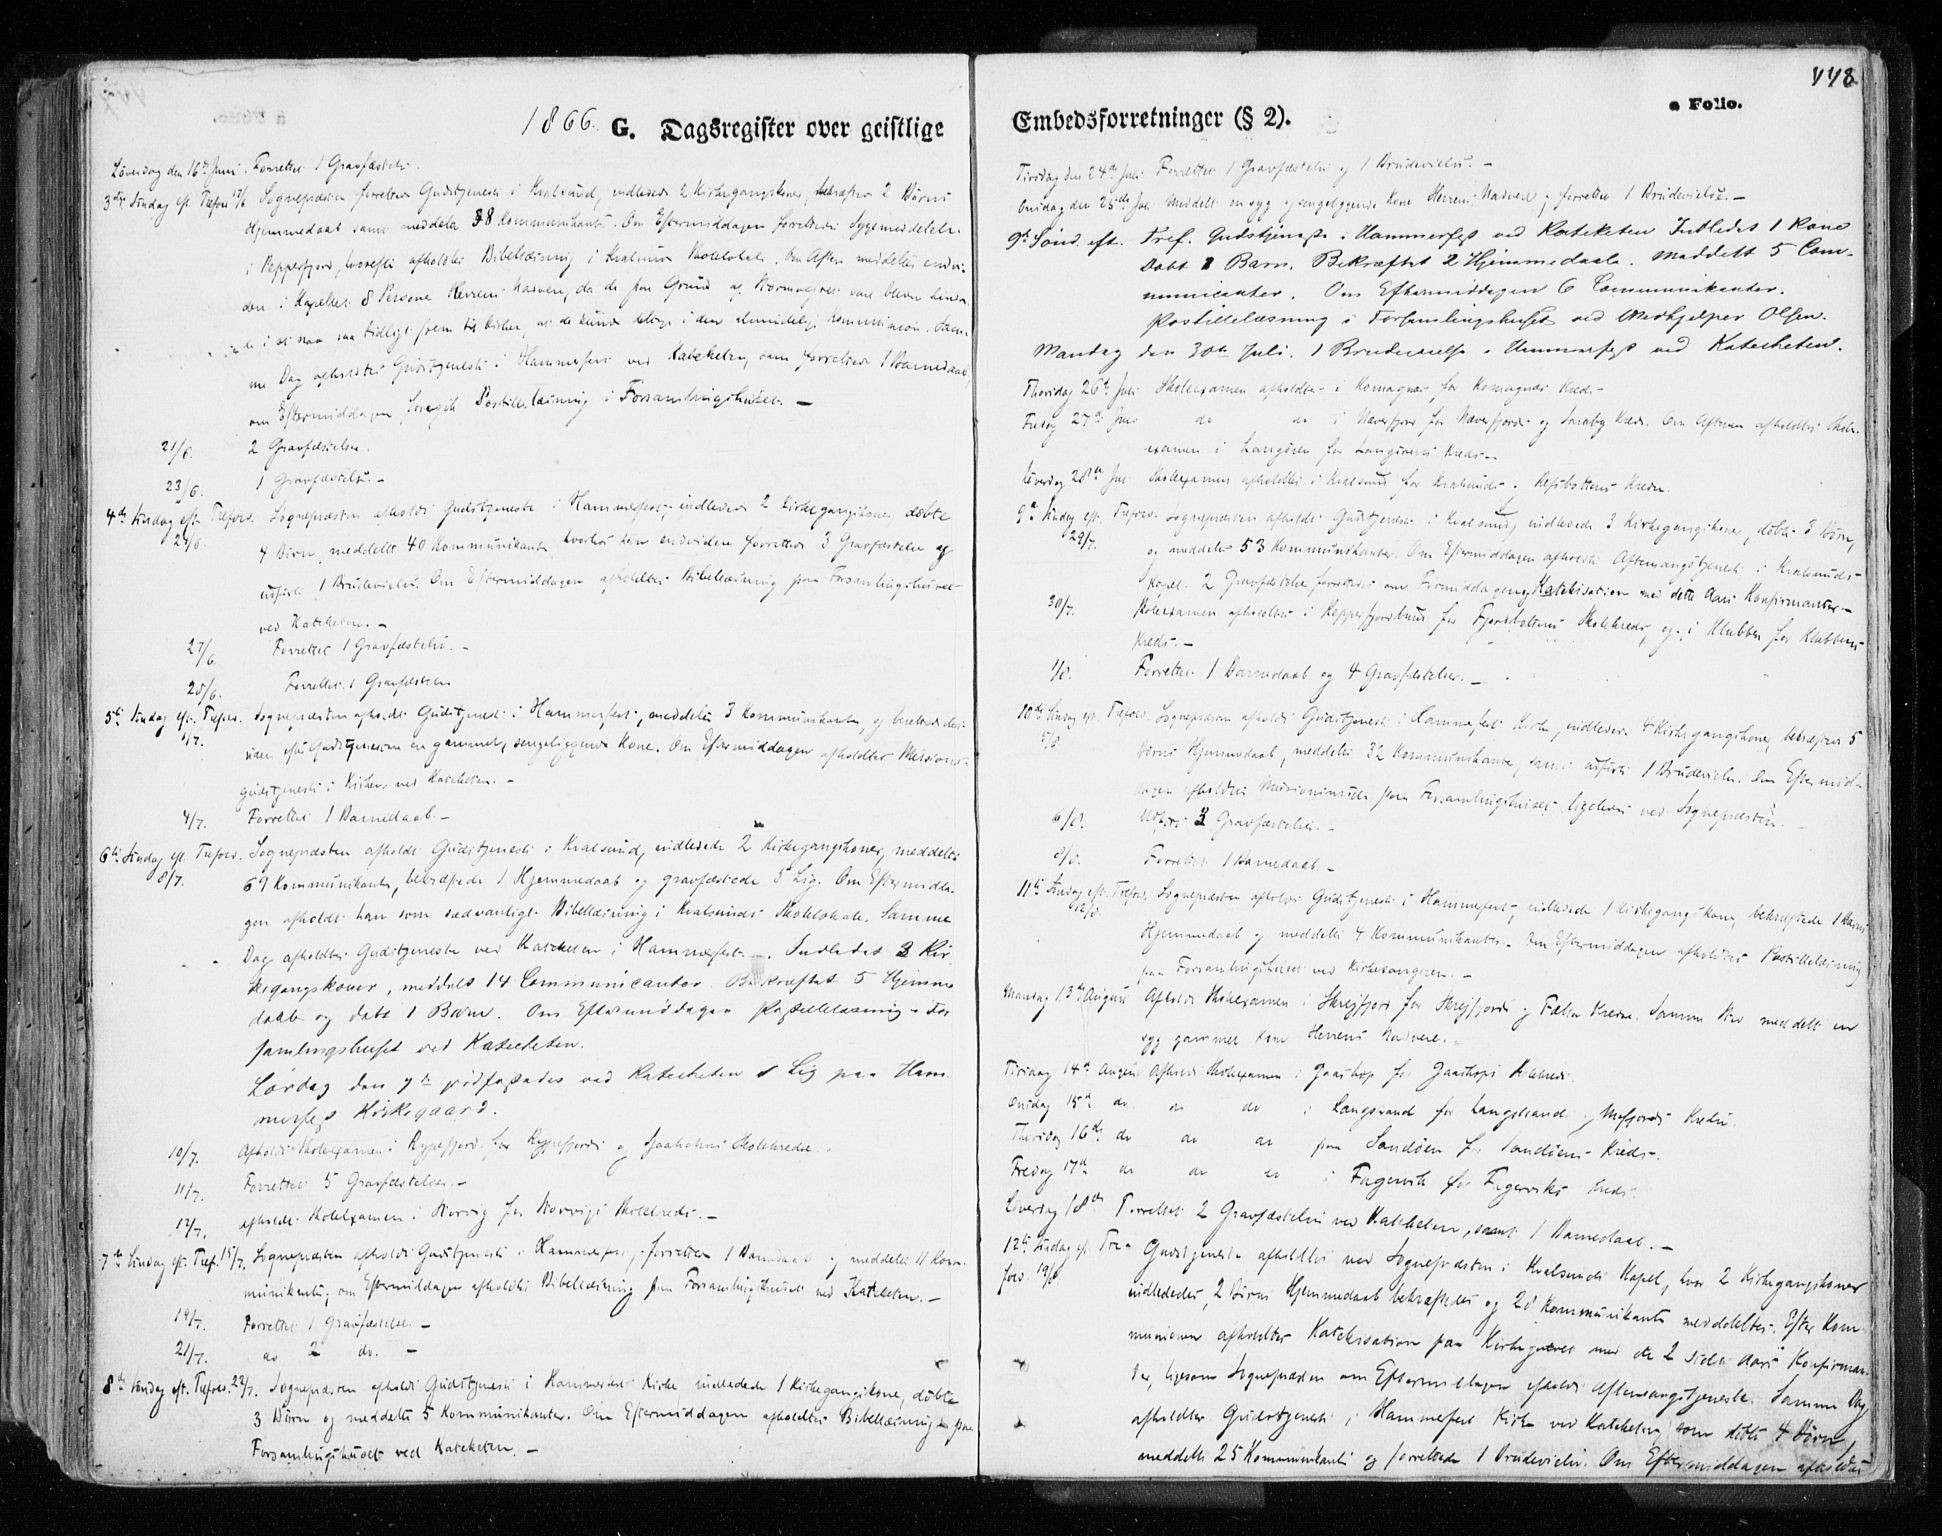 1866. G. Dagsregister over geistlige
Løverdag den 16de Juni. Forrettet 1 Gravfæstelse.
3die Søndag eft. Trefold. 17/6. Sognepræsten forrettede Gudstjeneste i Kvalsund, indledede 2 Kirkegangskoner, bekræftede 2 Børns
Hjemmedaab samt meddelte 38 Kommunikanter. Om Eftermiddagen forrettedes Sygemeddelelse
i Repperfjord, hvorefter afholdtes Bibellæsning i Kvalsunds Skolelokale. Om Aften meddeltes endvi-
dere i Kapellet 8 Personer Herrens Nadvere, da de paa Grund af Stormveiret vare blevne hindre-
de i at naa saa tidligt frem til Kirken, at de kunde deltage i den almindelige Kommunion. Sam-
me Dag afholdtes Gudstjeneste i Hammerfest ved Katecheten, som forrettede 1 Barnedaab,
om Eftermiddagen foregik Postillelæsning i Forsamlingshuset. —
21/6. 2 Gravfæstelser.
23/6. 1 Gravfæstelse. —
4de Søndag eft. Trefold. Sognepræsten afholdt Gudstjeneste i Hammerfest, indledede 2 Kirkegangskoner, døbte
24/6. 4 Børn, meddelte 40 Kommunikanter hvorhos han endvidere forrettede 3 Gravfæstelser og
udførte 1 Brudevielse. Om Eftermiddagen afholdtes Bibellæsning paa Forsamlingshuset
ved Katecheten. —
27/6. Forrettet 1 Gravfæstelse. —
28/6. Forrettet 1 Gravfæstelse
5te Søndag eft. Trefold. Sognepræsten afholdt Gudstjeneste i Hammerfest, meddelte 3 Kommunikanter, og berettede des-
1/7. uden efter Gudstjenesten en gammel, sengeliggende Kone. Om Eftermiddagen afholdtes Missions-
gudstjeneste i Kirken ved Katecheten. —
4/7. Forrettet 1 Barnedaab. —
6te Søndag eft. Trefold. Sognepræsten afholdt Gudstjeneste i Kvalsund, indledede 2 Kirkegangskoner, meddelte
8/7. 69 Kommunikanter, bekræftede 1 Hjemmedaab og gravfæstede 5 Lig. Om Eftermidda-
gen afholdt han som sædvanligt Bibellæsning i Kvalsunds Skolelokale. Samme
Dag afholdtes Gudstjeneste ved Katecheten i Hammerfest. —. Indledet 3 Kir-
kegangskoner, meddelt 14 Communicanter. Bekræftet 5 Hjemme
daab og døbt 1 Barn. Om Eftermiddagen Postillelæsning i For
samlingshuset ved Katecheten.
Lørdag den 7de jordfæstedes ved Katecheten 1 Lig paa Ham
merfest Kirkegaard.
10/7. Afholdt Skoleexamen i Rypefjord for Rypefjords og Jaaholmens Skolekredse.
11/7. Forrettet 5 Gravfæstelser. —
12/7. afholdt Skoleexamen i Korvig for Korvigs Skolekreds. —
7de Søndag eft. Tref. 15/7. Sognepræsten afholdt Gudstjeneste i Hammerfest, forrettede 1 Barnedaab og meddelte 11 Kom-
munikanter, om Eftermiddagen afholdtes Bibellæsning paa Forsamlingshuset ved Katecheten. —
19/7. Forrettet 1 Gravfæstelse. —
21/7. do 2 do. —
8de Søndag eft. Trefold. 22/7. Sognepræsten afholdt Gudstjeneste i Hammerfest Kirke indledede 1 Kirkegangskone, døbte
3 Børn og meddelte 5 Kommunikanter. Om Eftermiddagen afholdtes Bibellæsning paa
Forsamlingshuset ved Katecheten. —
448
a Folio.
Embedsforretninger (§ 2).
Tirsdag den 24de Juli Forrettet 1 Gravfæstelse og 1 Brudevielse. —
Onsdag den 25de Juli Meddelt en syg og sengeliggende Kone Herrens Nadvere, forrettet 1 Brudevielse. —
9de Sønd. eft. Tref. Gudstjeneste i Hammerfest ved Katecheten Indledet 1 Kone
Døbt 1 Barn. Bekræftet 2 Hjemmedaab. Meddelt 5 Com-
municanter. Om Eftermiddagen 6 Communikanter.
Postillelæsning i Forsamlingshuset ved Medhjelper Olsen.
Mandag den 30te Juli. 1 Brudevielse i Hammerfest ved Katecheten.
Thorsdag 26de Juli Skoleexamen afholdtes i Komagnæs for Komagnæs Kreds —
Fredag 27de Juli do do i Næverfjord for Næverfjords og Saraby Kreds. Om Aftenen afholdtes Skole-
examen i for Kreds. —
Løverdag 28de Juli Skoleexamen afholdtes i Kvalsund for Kvalsunds og Refsbottens Kredse.
9de Søndag eft. Trefold. Sognepræsten afholdt Gudstjeneste i Kvalsund, indledede 3 Kirkegangskoner, døbte 3 Børn,
29/7. og meddelte 53 Kommunikanter. Om Eftermiddagen afholdtes Aftensangstjeneste i Kvalsunds-
Kapel. 2 Gravfæstelser forrettedes om Formiddagen og Katekisation med dette Aars Konfirmanter. —
30/7. Skoleexamen afholdtes i Repperfjordbund for Fjordbottens Skolekreds, og i Klubben for Klubbens-
Kreds. —
1/8. Forrettet 1 Barnedaab og 4 Gravfæstelser. —
10de Søndag eft. Trefold. Sognepræsten afholdt Gudstjeneste i Hammerfest Kirke, indledede 4 Kirkegangskoner, bekræftede 5
5/8. Børns Hjemmedaab, meddelte 32 Kommunikanter, samt udførte 1 Brudevielse. Om Eftermid-
dagen afholdtes Missionsmøde paa Forsamlingshuset ligeledes ved Sognepræsten.
6/8. Udført 3 Gravfæstelser. —
8/8. Forrettet 1 Barnedaab. —
11te Søndag eft. Trefold. Sognepræsten afholdt Gudstjeneste i Hammerfest, indledede 1 Kirkegangskone, bekræftede 1 Barns
12/8. Hjemmedaab og meddelte 4 Kommunikanter. Om Eftermiddagen afholdtes Postillelæsning
paa Forsamlingshuset ved Kirkesangeren. —
Mandag 13de August Afholdt Skoleexamen i Skreifjord for Skreifjords og Kredse. Samme Sted meddelt en
syg gammel Kone Herrens Nadvere. —
Tirsdag 14de August Afholdt Skoleexamen i for Skolekreds.
Onsdag 15de do. do do i Langstrand for Langstrands og Mefjords Kredse.
Thorsdag 16de do do do paa Sandøen for Sandøens Kreds —.
Fredag 17de do do do i Fagervik for Fagerviks Kreds.
Løverdag 18de Forrettet 2 Gravfæstelser ved Katecheten, samt 1 Barnedaab. —
12te Søndag ef. Tre- Gudstjeneste afholdtes ved Sognepræsten i Kvalsunds Kapel, hvor 2 Kirkegangskoner
fold 19/8 indlededes, 2 Børns Hjemmedaab bekræftedes og 28 Kommunikanter meddeltes. Efter Kom-
munionen afholdtes Katekisation paa Kirkegulvet med de 2 sidste Aars Konfirman-
der, ligesom Sognepræsten om Eftermiddagen afholdt Aftensangstjeneste. Samme Dag
afholdtes Gudstjeneste i Hammerfest Kirke ved Katecheten, som døbte 4 Børn,
meddelte 25 Kommunikanter og forrettede 1 Brudevielse. Om Eftermiddagen afholdtes